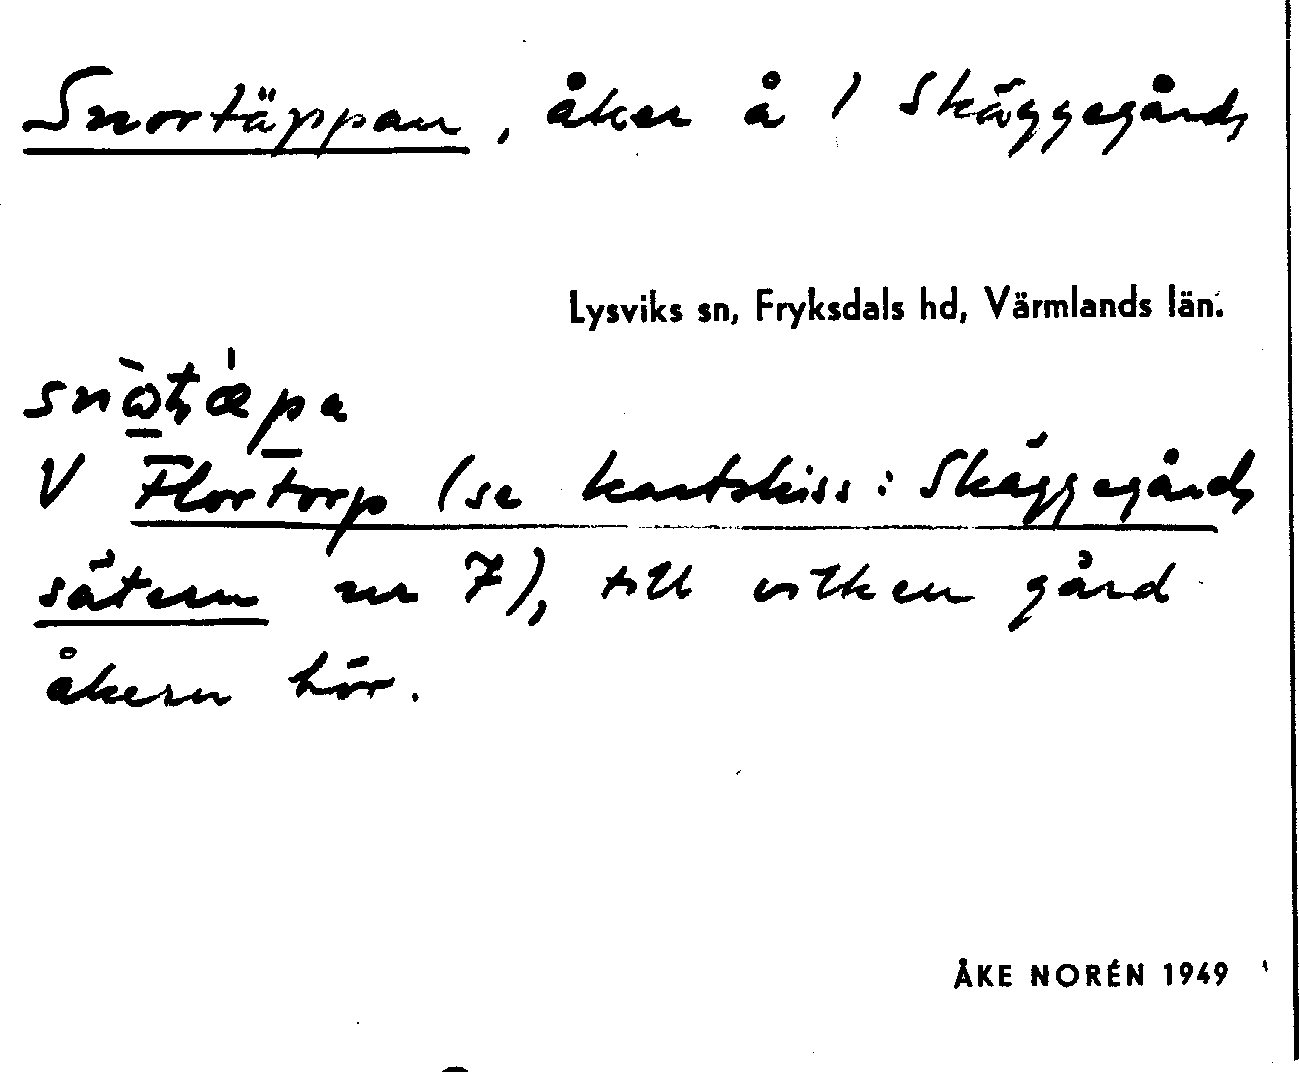 Snortäppan, åker å 1 Skäggegårds
Lysviks sn, Fryksdals hd, Värmlands län.
V Flortorp (se kartskiss: Skäggegårds
sätern nr 7), till vilken gård
åkern hör.
ÅKE NORÉN 1949